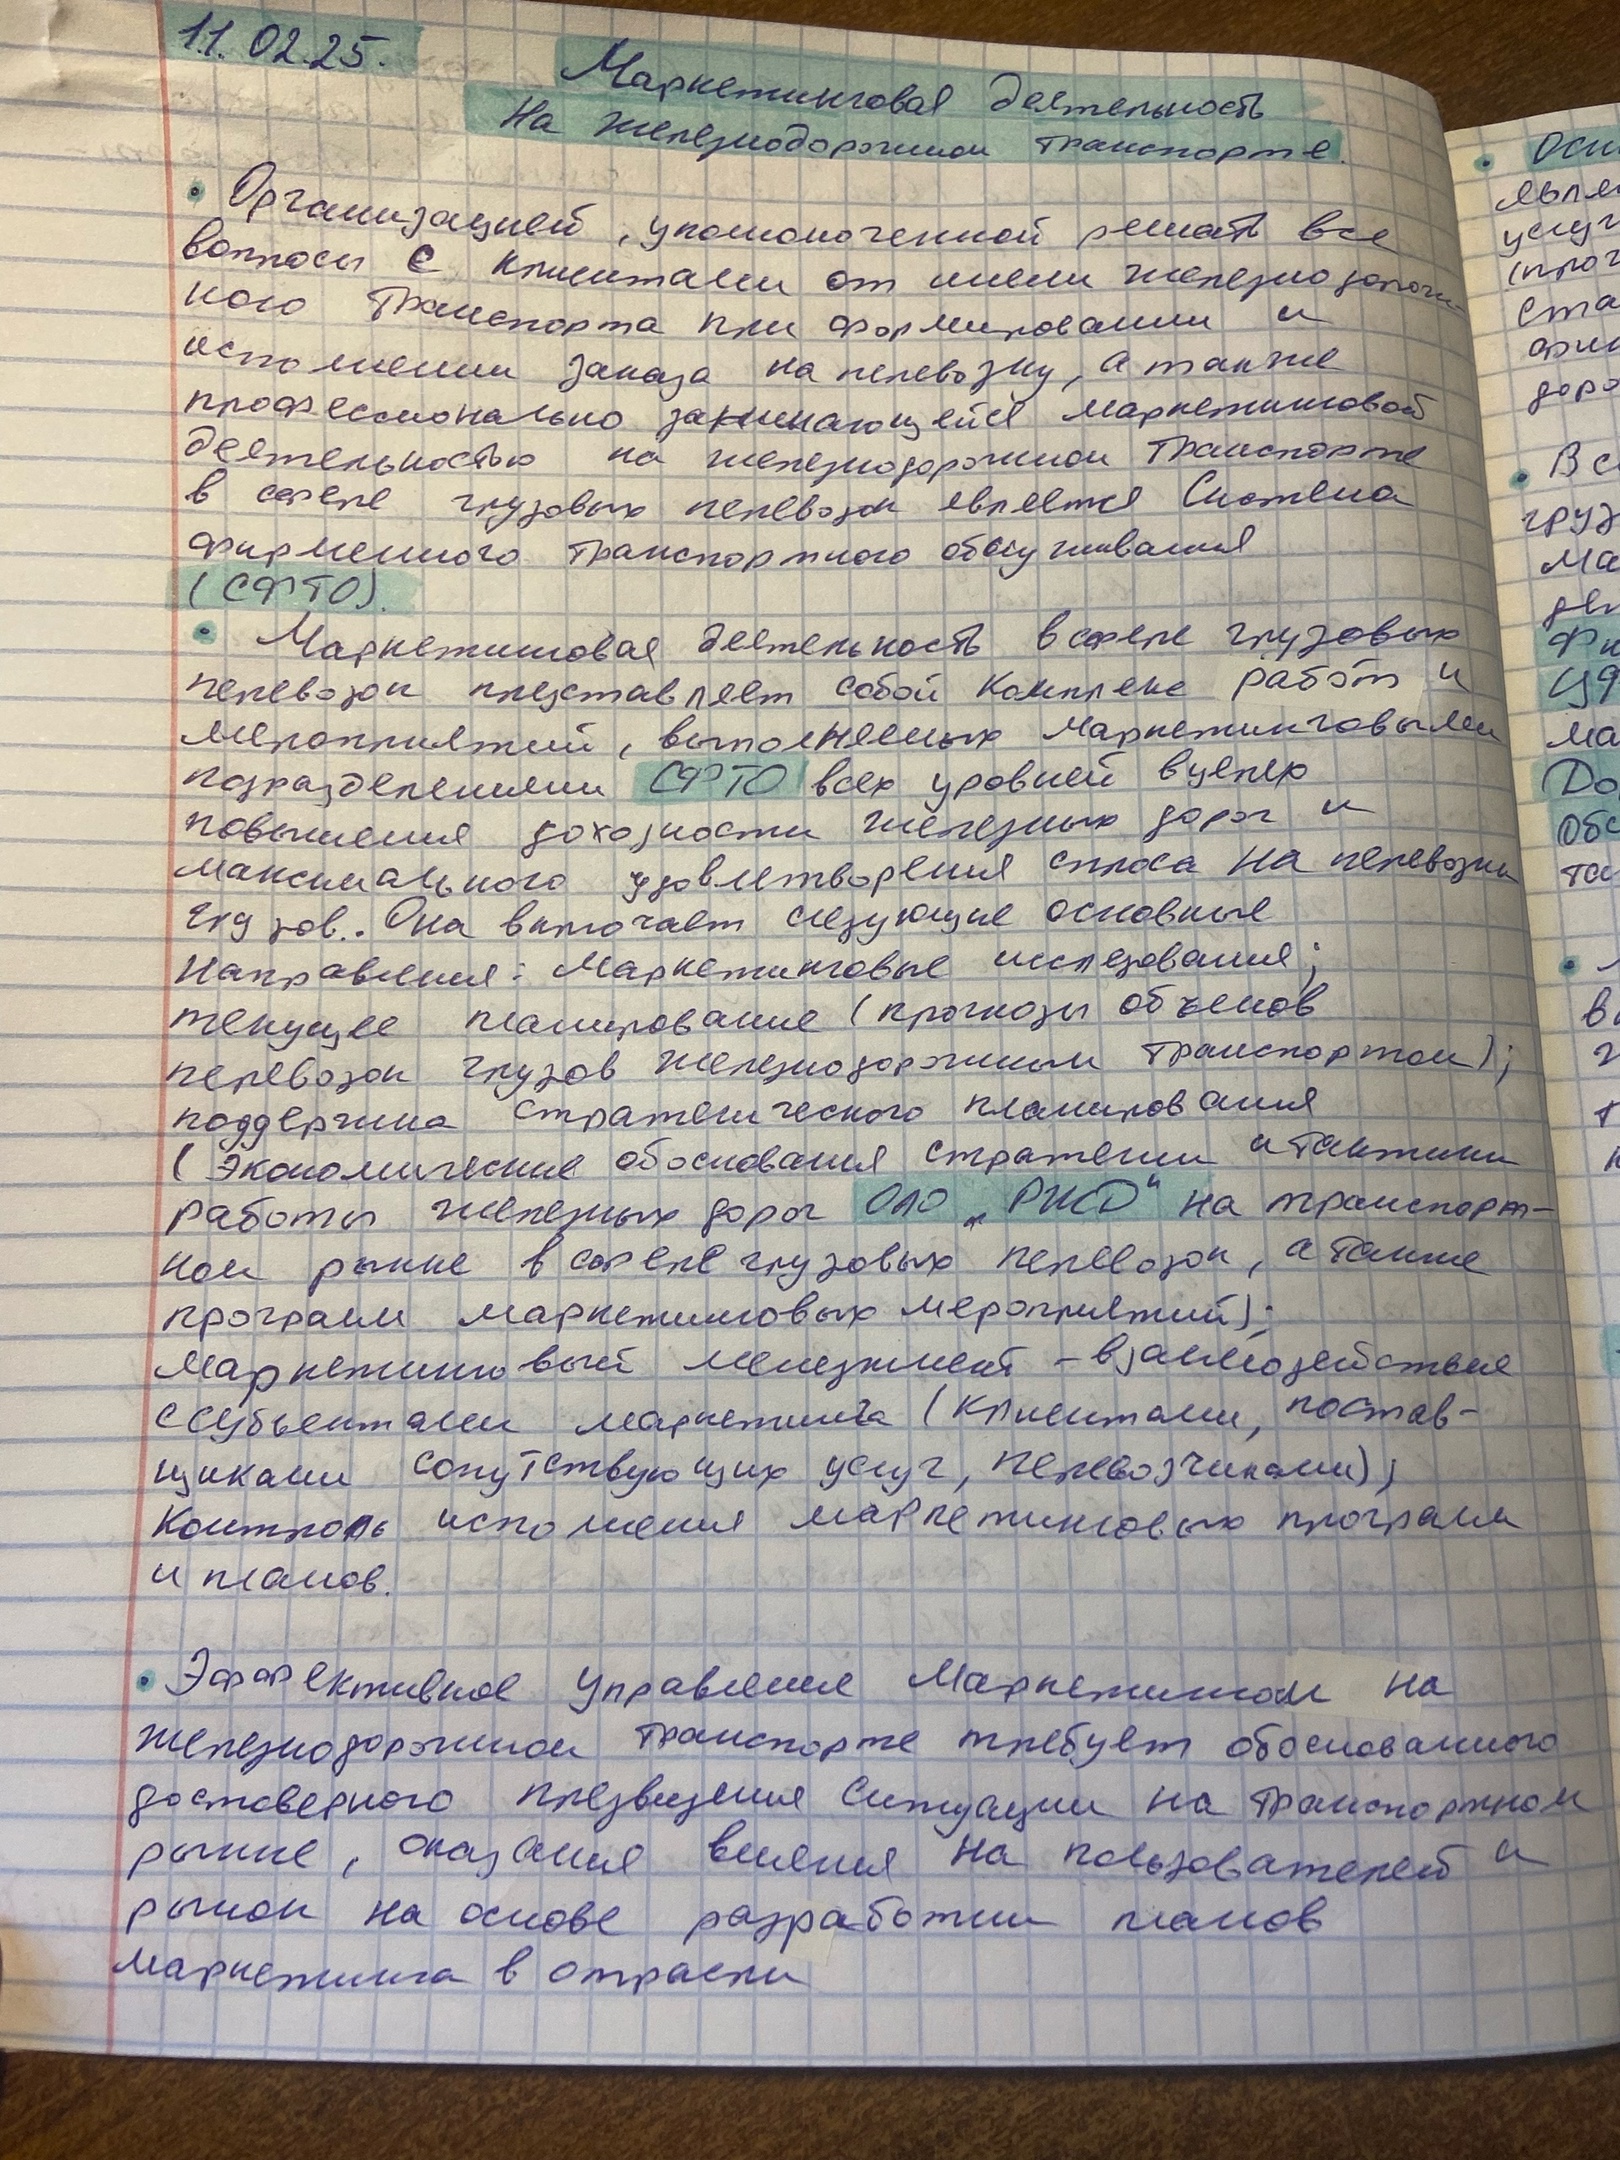 11.02.25.
Маркетинговая деятельность
На железнодорожном транспорте.
• Организацией, уполномоченной решать все
вопросы с клиентами от имени железнодорож-
ного транспорта при формировании и
исполнении заказа на перевозку, а также
профессионально занимающейся маркетинговой
деятельностью на железнодорожном транспорте
в сфере грузовых перевозок является Система
фирменного транспортного обслуживания
(СФТО).
• Маркетинговая деятельность в сфере грузовых
перевозок представляет собой комплекс работ и
мероприятий, выполняемых маркетинговыми
подразделениями СФТО всех уровней в целях
повышения доходности железных дорог и
максимального удовлетворения спроса на перевозки
грузов.. Она включает следующие основные
Направления: Маркетинговые исследования;
текущее планирование (прогнозы объемов
перевозок грузов железнодорожным транспортом);
поддержка стратегического планирования
(Экономические обоснования стратегии и тактики
работы железных дорог ОАО „РЖД" на транспорт-
ном рынке в сфере грузовых перевозок, а также
программ маркетинговых мероприятий);
Маркетинговый менеджмент - взаимодействие
с субъектами маркетинга (клиентами, постав-
щиками сопутствующих услуг, перевозчиками);
Контроль исполнения маркетинговых программ
и планов.
• Эффективное управление Маркетингом на
железнодорожном транспорте требует обоснованного
достоверного предвидения ситуации на транспортном
рынке, оказания влияния на пользователей и
рынок на основе разработки планов
маркетинга в отрасли
• Осн
явля
услуг
(прог
ста
доро
• В с
груз
ма
Фи
ЦФ
ма
До
обс